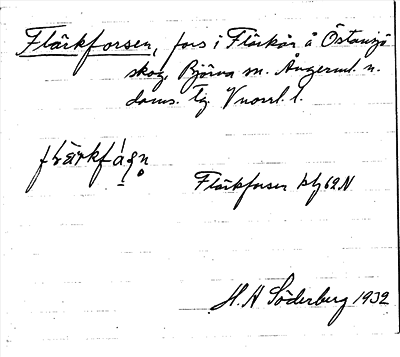 Flärkforsen, fors i Flärkån å Östansjö
skog, Björna sn. Ångerml. n.
doms. tg. Vnorrl. l.
Flärkforsen bl 62 N
H. H Söderberg 1932